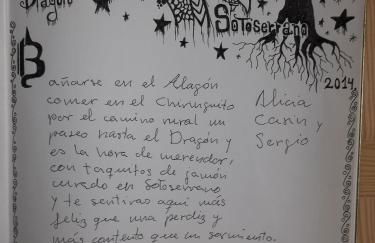 Dragón
Sotoserrano
2014
Bañarse en el Alagón
comer en el Chiringuito
por el camino rural un
paseo hasta el Dragón y
es la hora de merendar,
con taquitos de jamón
curado en Sotoserrano
y te sentiras aquí más
feliz que una perdiz y
más contento que un sarmiento.
Alicia
Carin y
Sergio